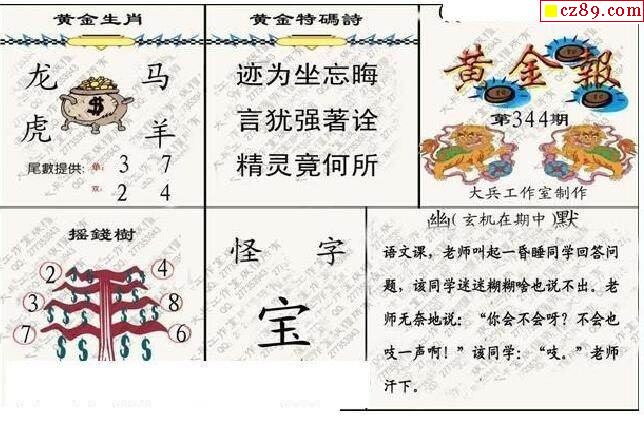 cz89.com
黄金生肖
龙 马
虎 羊
$
尾數提供: 单: 3 7
双: 2 4
黄金特碼詩
迹为坐忘晦
言犹强著诠
精灵竟何所
黄金報
第344期
大兵工作室制作
摇錢樹
2 4
3 8
7 6
怪 字
宝
幽(玄机在期中)默
语文课，老师叫起一昏睡同学回答问
题，该同学迷迷糊糊啥也说不出。老
师无奈地说：“你会不会呀？不会也
吱一声啊！”该同学：“吱。”老师
汗下。